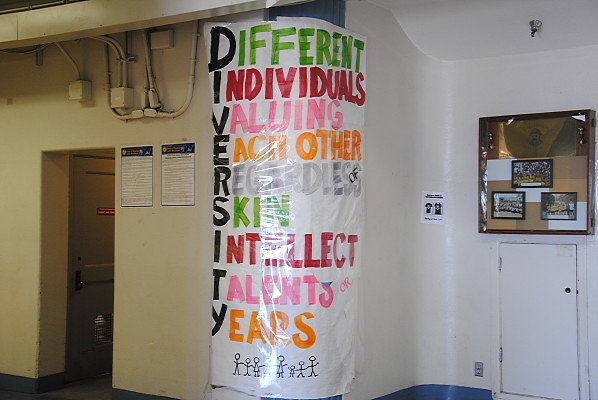 DIFFERENT
INDIVIDUALS
VALUING
EACH OTHER
REGARDLESS OF
SKIN
INTELLECT
TALENTS OR
YEARS